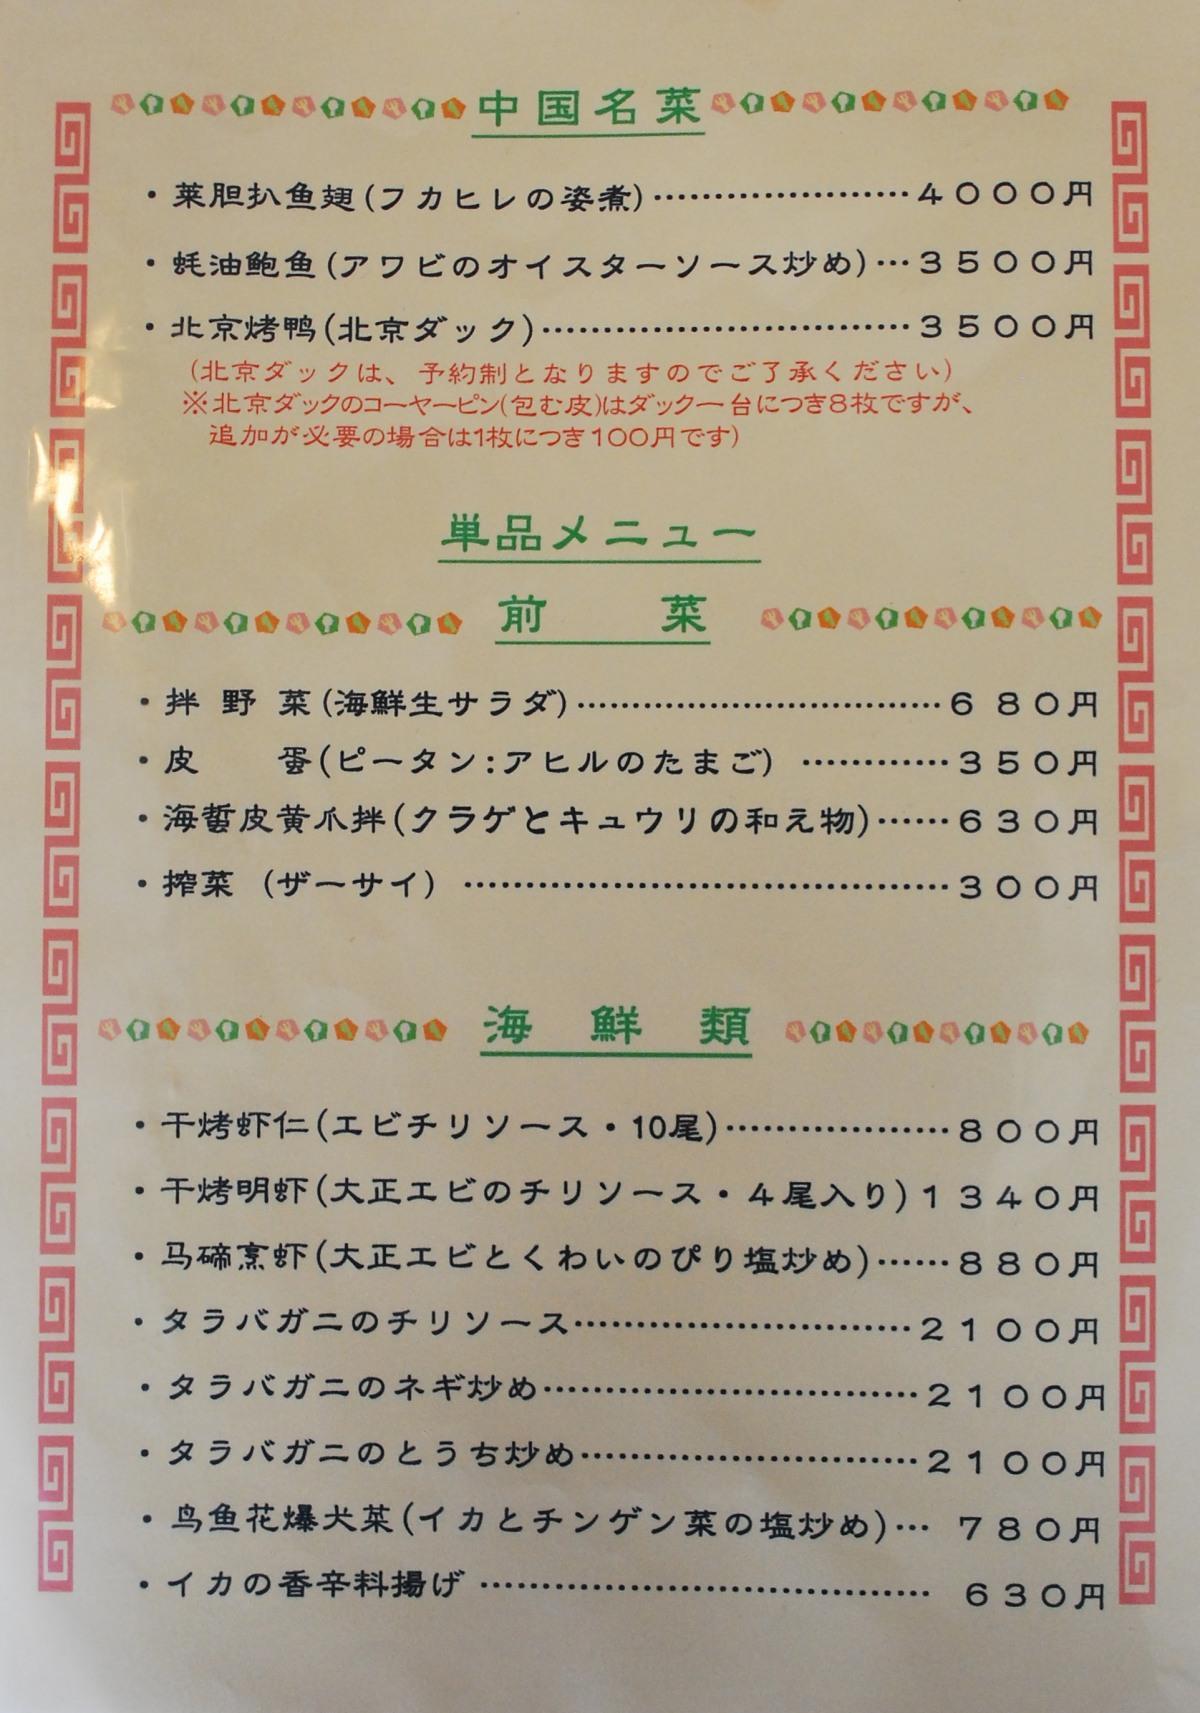 中国名菜
・菜胆扒鱼翅(フカヒレの姿煮)…………………4000円
・蚝油鲍鱼(アワビのオイスターソース炒め)…3500円
・北京烤鸭(北京ダック)………………………………3500円
(北京ダックは、予約制となりますのでご了承ください)
※北京ダックのコーヤーピン(包む皮)はダック一台につき8枚ですが、
追加が必要の場合は1枚につき100円です)
単品メニュー
前 菜
・拌 野 菜(海鮮生サラダ)………………………………680円
・皮 蛋(ピータン:アヒルのたまご) …………350円
・海蜇皮黄爪拌(クラゲとキュウリの和え物)……630円
・搾菜 (ザーサイ) …………………………………………300円
海 鮮 類
・干烤虾仁(エビチリソース・10尾)…………………800円
・干烤明虾(大正エビのチリソース・4尾入り)1340円
・马碲烹虾(大正エビとくわいのぴり塩炒め)……880円
・タラバガニのチリソース……………………………2100円
・タラバガニのネギ炒め………………………………2100円
・タラバガニのとうち炒め……………………………2100円
・鸟鱼花爆犬菜(イカとチンゲン菜の塩炒め)… 780円
・イカの香辛料揚げ ……………………………………… 630円